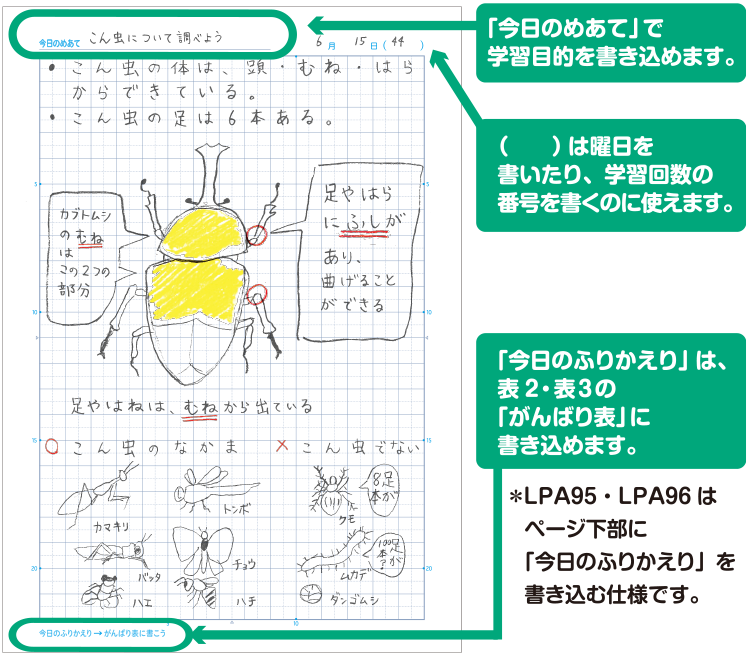 今日のめあて こん虫について調べよう
6月 15日(44)
• こん虫の体は、頭・むね・はら
からできている。
• こん虫の足は6本ある。
カブトムシ
のむね
は
この2つの
部分
足やはら
にふしが
あり、
曲げること
ができる
足やはねは、むねから出ている
○ こん虫のなかま × こん虫でない
カマキリ
トンボ
クモ
8本足が
バッタ
チョウ
ムカデ
100本?足が
ハエ
ハチ
ダンゴムシ
5
5
10
10
15
15
20
20
5
10
今日のふりかえり→がんばり表に書こう
「今日のめあて」で
学習目的を書き込めます。
(　　)は曜日を
書いたり、学習回数の
番号を書くのに使えます。
「今日のふりかえり」は、
表2・表3の
「がんばり表」に
書き込めます。
＊LPA95・LPA96は
ページ下部に
「今日のふりかえり」を
書き込む仕様です。